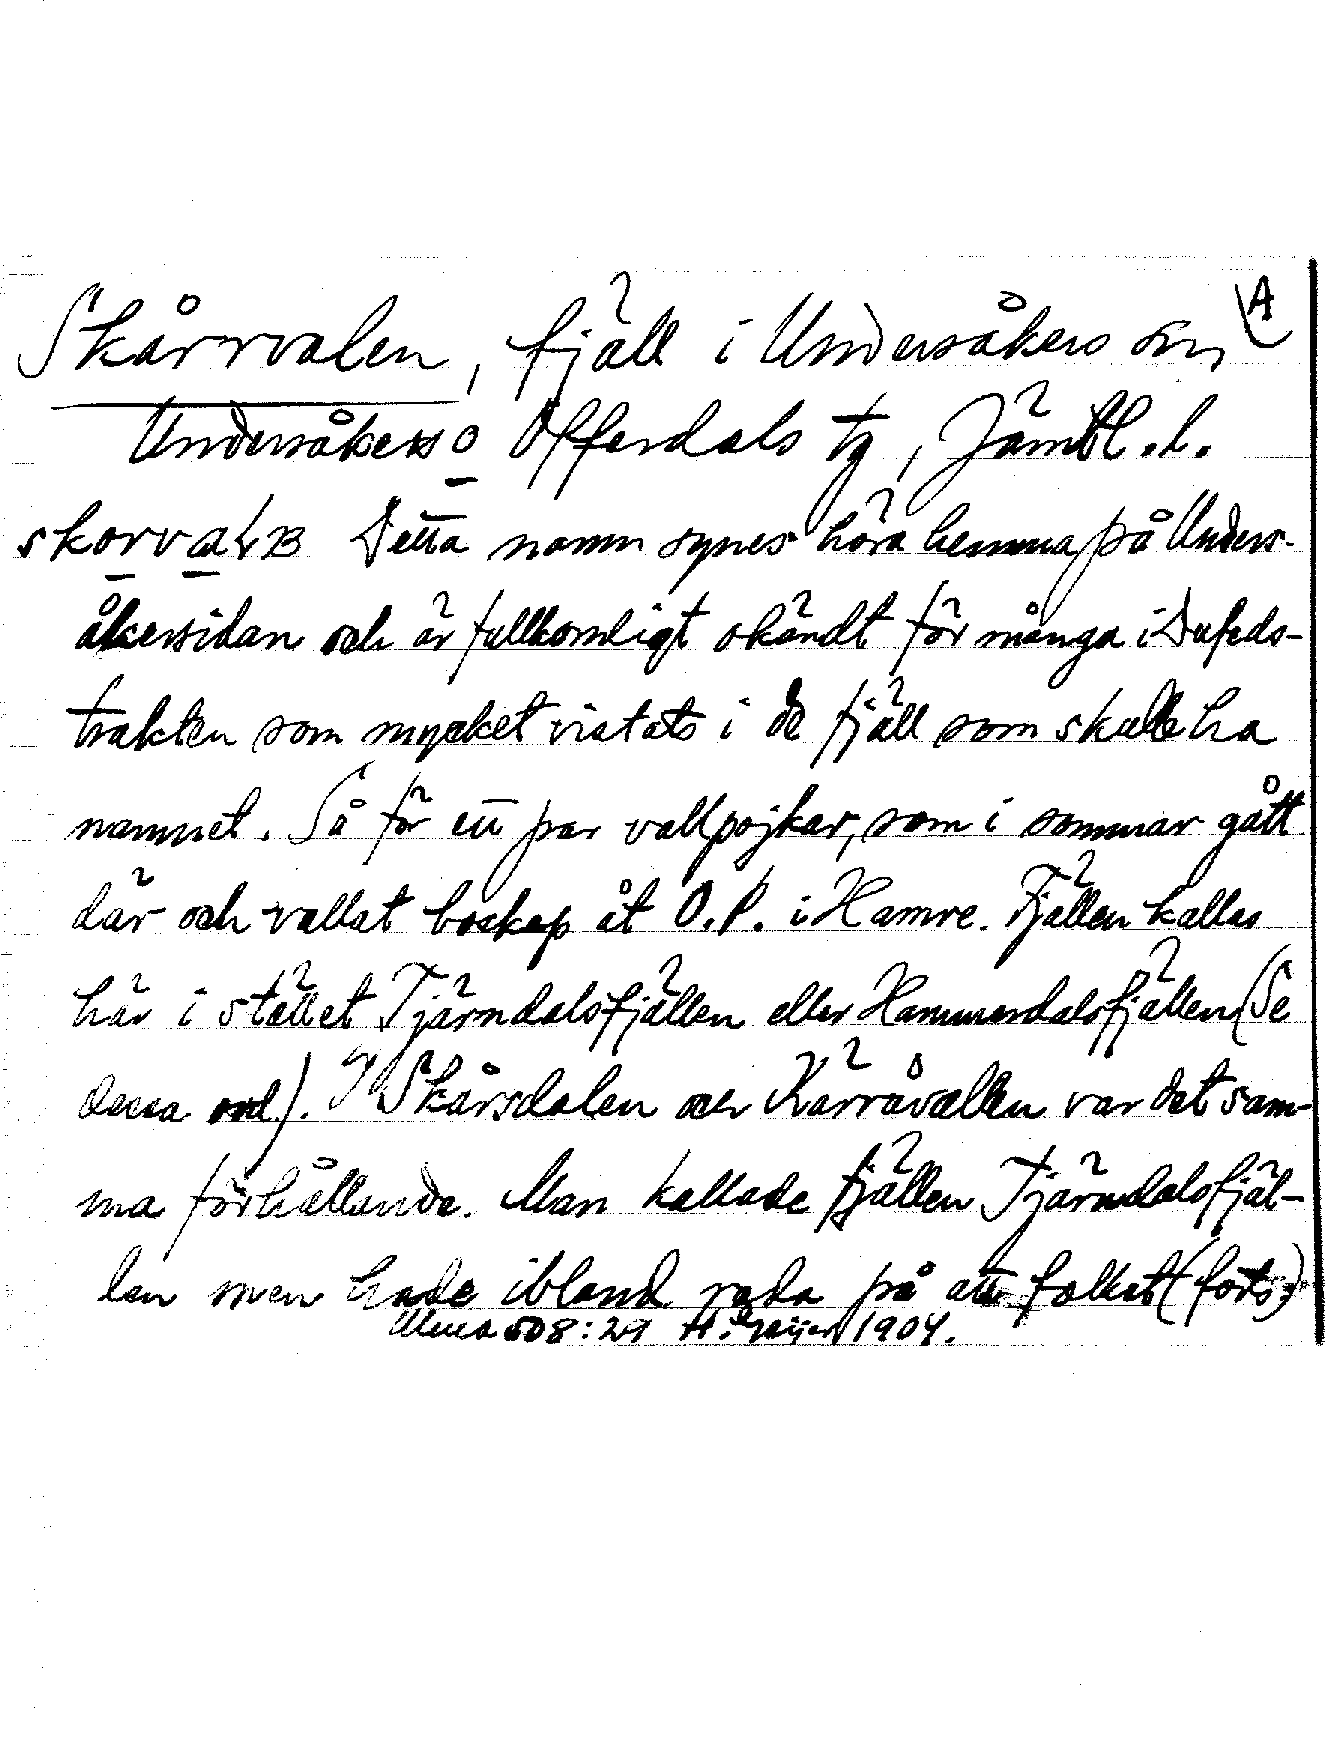 A
Skårrvalen, fjäll i Undersåkers sn,
Undersåkers o Offerdals tg, Jämtl. l.
Detta namn synes höra hemma på Unders-
åkersidan och är fullkomligt okändt för många i Dufeds-
trakten som mycket vistats i de fjäll som skulle ha
namnet. Så för ett par vallpojkar, som i sommar gått
där och vallat boskap åt O.P. i Hamre. Fjällen kallas
här i stället Tjärndalsfjällen eller Hammardalsfjällen (Se
dessa ord). I Skårsdalen och Kärråvallen var det sam-
ma förhållande. Man kallade fjällen Tjärndalsfjäl-
len men hade ibland reda på att folket (forts.)
508:29 H. Geijer 1904.